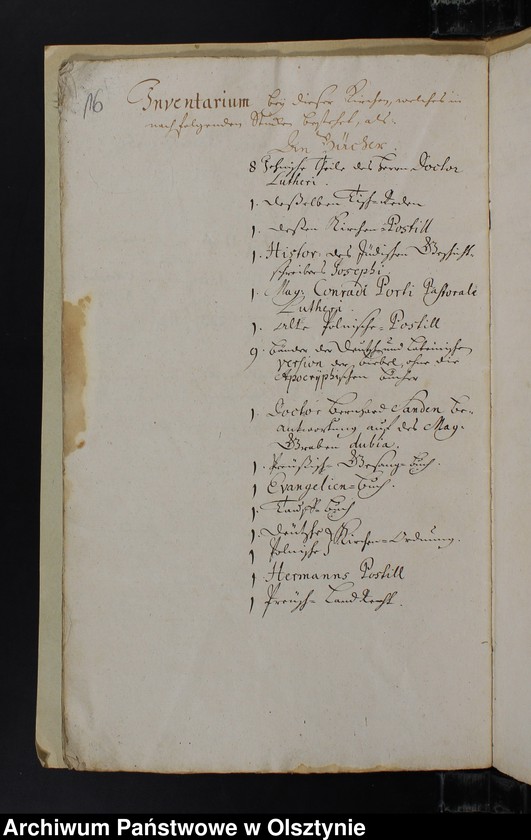 116
Inventarium bey dieser Kirchen, welches in
nachfolgenden Stücken bestehet, als.
An Bücher.
8 Jehnische Theile des Herrn Doctor
Lutheri.
1. deßelben Tisch-Reden
1. deßen Kirchen-Postill
1. Histor. des Jüdischen Geschicht-
schreibers Josephi
1. Mag. Conradi Porti Pastorale
Lutheri.
1. Alte Polnische-Postill
9. Bänder der Deutsch und Lateinischen
version der Biebel, ohne die
Apocryphischen Bücher
1. Doctor Bernhard Sanden Be-
antwortung auf des Mag.
Graben dubia.
1. Preüßisch Gesang-Buch.
1 Evangelien-Buch.
1. Tauff-Buch
1. Deütsche
1 Polnische } Kirchen-Ordnung.
1 Hermanns Postill
1 Preüsch-Land Recht.
Archiwum Państwowe w Olsztynie